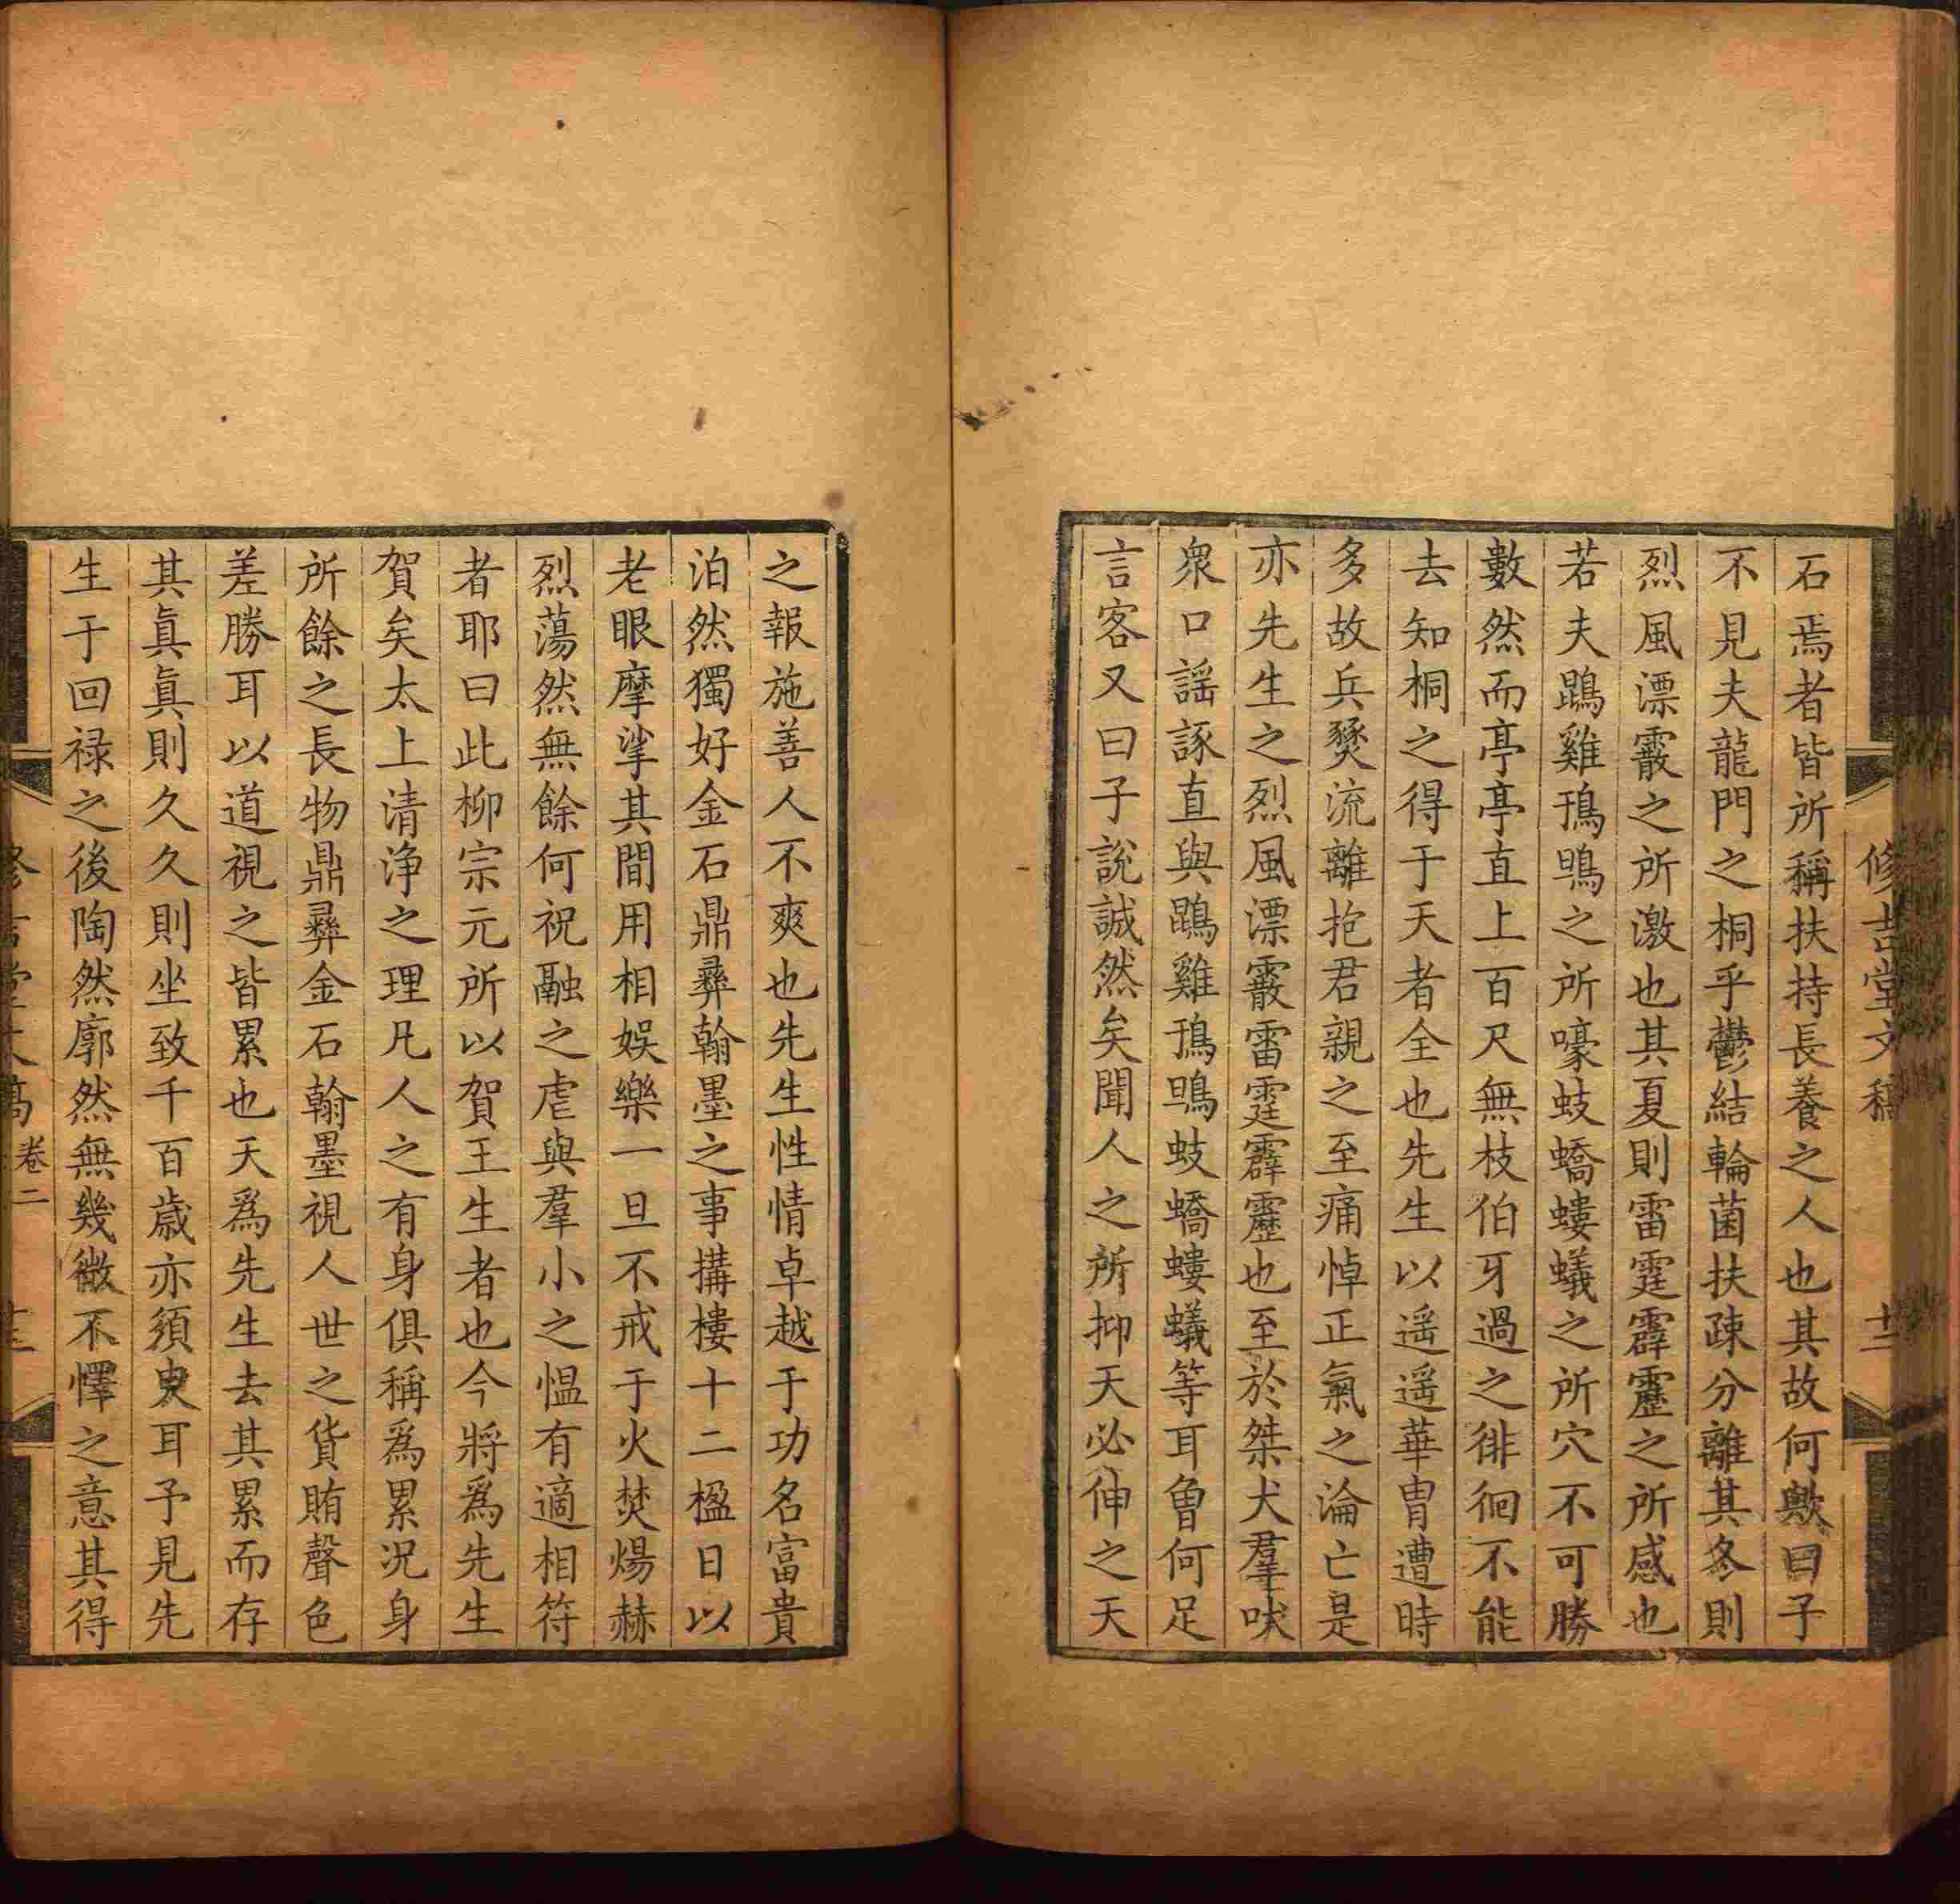 修吉堂文稿
十二
石焉者皆所稱扶持長養之人也其故何歟曰子
不見夫龍門之桐乎鬱結輪菌扶疎分離其冬則
烈風漂霰之所激也其夏則雷霆霹靂之所感也
若夫鵾雞鳱鴠之所嚎蚑蟜螻蟻之所穴不可勝
數然而亭亭直上百尺無枝伯牙過之徘徊不能
去知桐之得于天者全也先生以遥遥華胄遭時
多故兵燹流離抱君親之至痛悼正氣之淪亡是
亦先生之烈風漂霰雷霆霹靂也至於桀犬羣吠
衆口謡諑直與鵾雞鳱鴠蚑蟜螻蟻等耳曾何足
言客又曰子說誠然矣聞人之所抑天必伸之天
之報施善人不爽也先生性情卓越于功名富貴
泊然獨好金石鼎彝翰墨之事搆樓十二楹日以
老眼摩挲其間用相娛樂一旦不戒于火焚煬赫
烈蕩然無餘何祝融之虐與羣小之愠有適相符
者耶曰此柳宗元所以賀王生者也今將爲先生
賀矣太上清浄之理凡人之有身俱稱爲累况身
所餘之長物鼎彝金石翰墨視人世之貨賄聲色
差勝耳以道視之皆累也天爲先生去其累而存
其眞眞則久久則坐致千百歳亦須臾耳予見先
生于回禄之後陶然廓然無幾微不懌之意其得
修吉堂文稿
卷二
十三